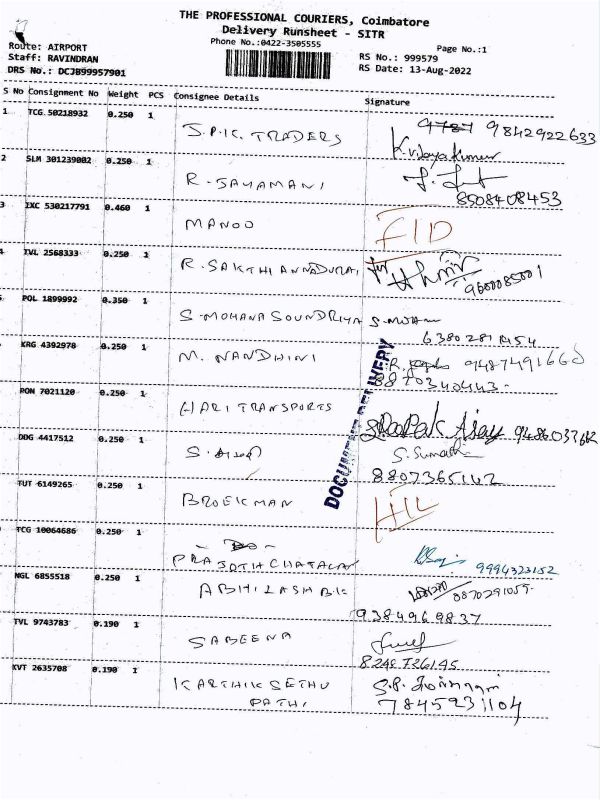 THE PROFESSIONAL COURIERS, Coimbatore
Delivery Runsheet - SITR
Phone No.:0422-3505555
Page No.:1
Route: AIRPORT
Staff: RAVINDRAN
DRS No.: DCJB99957901
RS No.: 999579
RS Date: 13-Aug-2022
S No Consignment No Weight PCS Consignee Details Signature
1 TCG 50218932 0.250 1 S.P.K. TRADERS 9842922633
K.vijayakumar
2 SLM 301239002 0.250 1 R. SAYAMANI
8508408453
3 IXC 530217791 0.460 1 MANOO
TVL 2568333 0.250 1 R. SAKTHI ANNADURAI for
9600085001
POL 1899992 0.350 1 S. MOHANA SOUNDRIYA S. MOHANA
KRG 4392978 0.250 1 M. NANDHINI
8870340443
RON 7021120 0.250 1 HARI TRANSPORTS
DOCUMENT DELIVERY
DDG 4417512 0.250 1 S. Sumathi
8807365142
TUT 6149265 0.250 1 BROEKMAN
TCG 10064686 0.250 1
9994323152
NGL 6855518 0.250 1 ABHILASH B.K
9384969837
TVL 9743783 0.190 1 SABEENA
KVT 2635708 0.190 1 KARTHIK SETHU
PATHI 7845931104